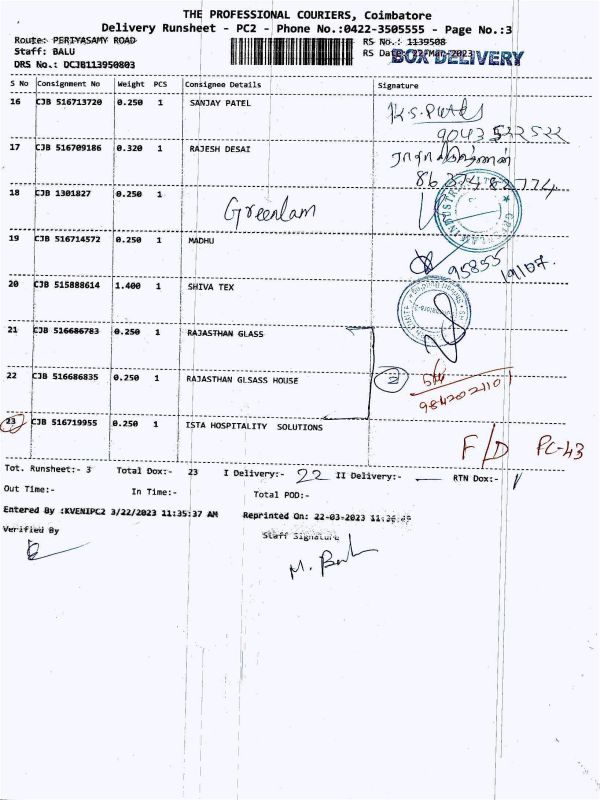 THE PROFESSIONAL COURIERS, Coimbatore
Delivery Runsheet - PC2 - Phone No.:0422-3505555 - Page No.:3
Route: PERIYASAMY ROAD
RS No.: 1139508
Staff: BALU
RS Date: 22-Mar-2023
BOX DELIVERY
DRS No.: DCJB113950803
S No Consignment No Weight PCS Consignee Details Signature
16 CJB 516713720 0.250 1 SANJAY PATEL K.S. Patel
9043522522
17 CJB 516709186 0.320 1 RAJESH DESAI
86374 82774
18 CJB 1301827 0.250 1 Greenlam
19 CJB 516714572 0.250 1 MADHU
95855 19107.
20 CJB 515888614 1.400 1 SHIVA TEX
21 CJB 516686783 0.250 1 RAJASTHAN GLASS
22 CJB 516686835 0.250 1 RAJASTHAN GLSASS HOUSE 2
9842021101
23 CJB 516719955 0.250 1 ISTA HOSPITALITY SOLUTIONS
F/D PC-43
Tot. Runsheet:- 3 Total Dox:- 23 I Delivery:- 22 II Delivery:- — RTN Dox:- 1
Out Time:- In Time:- Total POD:-
Entered By :KVENIPC2 3/22/2023 11:35:37 AM Reprinted On: 22-03-2023
Verified By Staff Signature